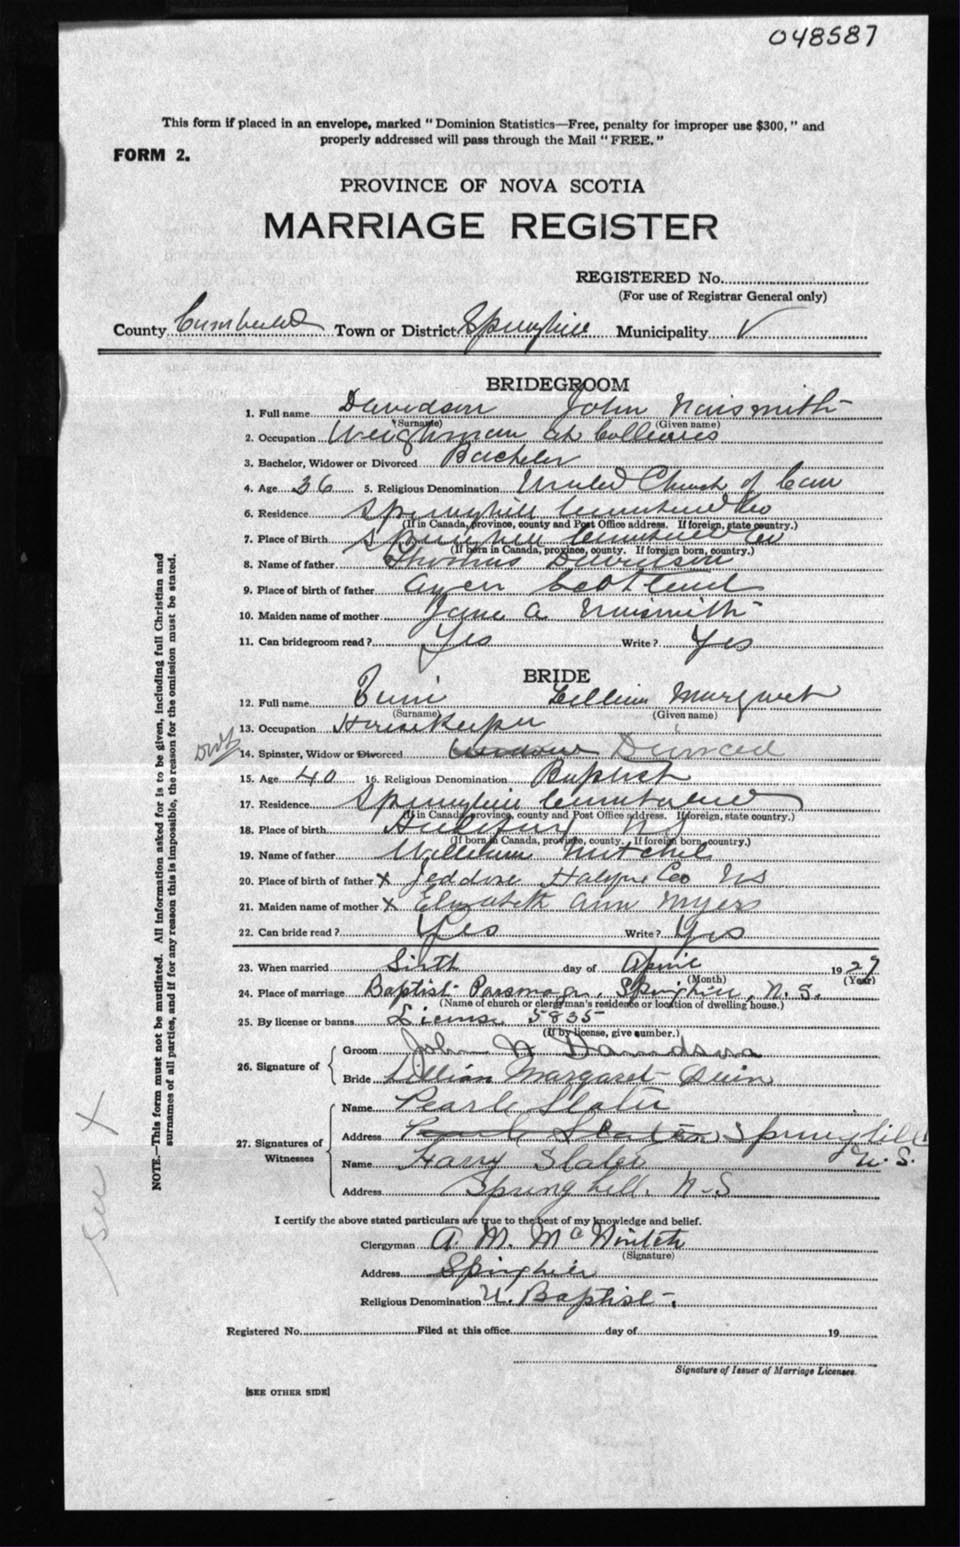 048587
This form if placed in an envelope, marked "Dominion Statistics—Free, penalty for improper use $300," and
properly addressed will pass through the Mail "FREE."
FORM 2.
PROVINCE OF NOVA SCOTIA
MARRIAGE REGISTER
REGISTERED No.
(For use of Registrar General only)
County Cumberland Town or District Springhill Municipality √
BRIDEGROOM
1. Full name Davidson John Naismith
(Surname) (Given name)
2. Occupation Weighman at Collieries
3. Bachelor, Widower or Divorced Bachelor
4. Age 36 5. Religious Denomination United Church of Can
6. Residence Springhill Cumberland Co
(If in Canada, province, county and Post Office address. If foreign, state country.)
7. Place of Birth Springhill Cumberland Co
(If born in Canada, province, county. If foreign born, country.)
8. Name of father Thomas Davidson
9. Place of birth of father Scotland
10. Maiden name of mother Jane A. Naismith
11. Can bridegroom read? Yes Write? Yes
BRIDE
12. Full name Lillian Margaret
(Surname) (Given name)
13. Occupation Housekeeper
14. Spinster, Widow or Divorced Divorced
15. Age 40 16. Religious Denomination Baptist
17. Residence Springhill Cumberland
(If in Canada, province, county and Post Office address. If foreign, state country.)
18. Place of birth Halifax N.S
(If born in Canada, province, county. If foreign born, country.)
19. Name of father William Mitchel
20. Place of birth of father X Jeddore Halifax Co NS
21. Maiden name of mother X Elizabeth Ann Myers
22. Can bride read? Yes Write? Yes
23. When married Sixth day of April 1927
(Month) (Year)
24. Place of marriage Baptist Parsonage, Springhill, N.S.
(Name of church or clergyman's residence or location of dwelling house.)
25. By license or banns License 5835
(If by license, give number.)
26. Signature of
Groom John N Davidson
Bride Lillian Margaret
27. Signatures of Witnesses
Name Pearle Slater
Address Springhill
N.S.
Name Harry Slater
Address Springhill, N.S
I certify the above stated particulars are true to the best of my knowledge and belief.
Clergyman A. M. McNintch
(Signature)
Address Springhill
Religious Denomination U. Baptist.
Registered No. Filed at this office day of 19
Signature of Issuer of Marriage Licenses.
[SEE OTHER SIDE]
NOTE.—This form must not be mutilated. All information asked for is to be given, including full Christian and
surnames of all parties, and if for any reason this is impossible, the reason for the omission must be stated.
See X